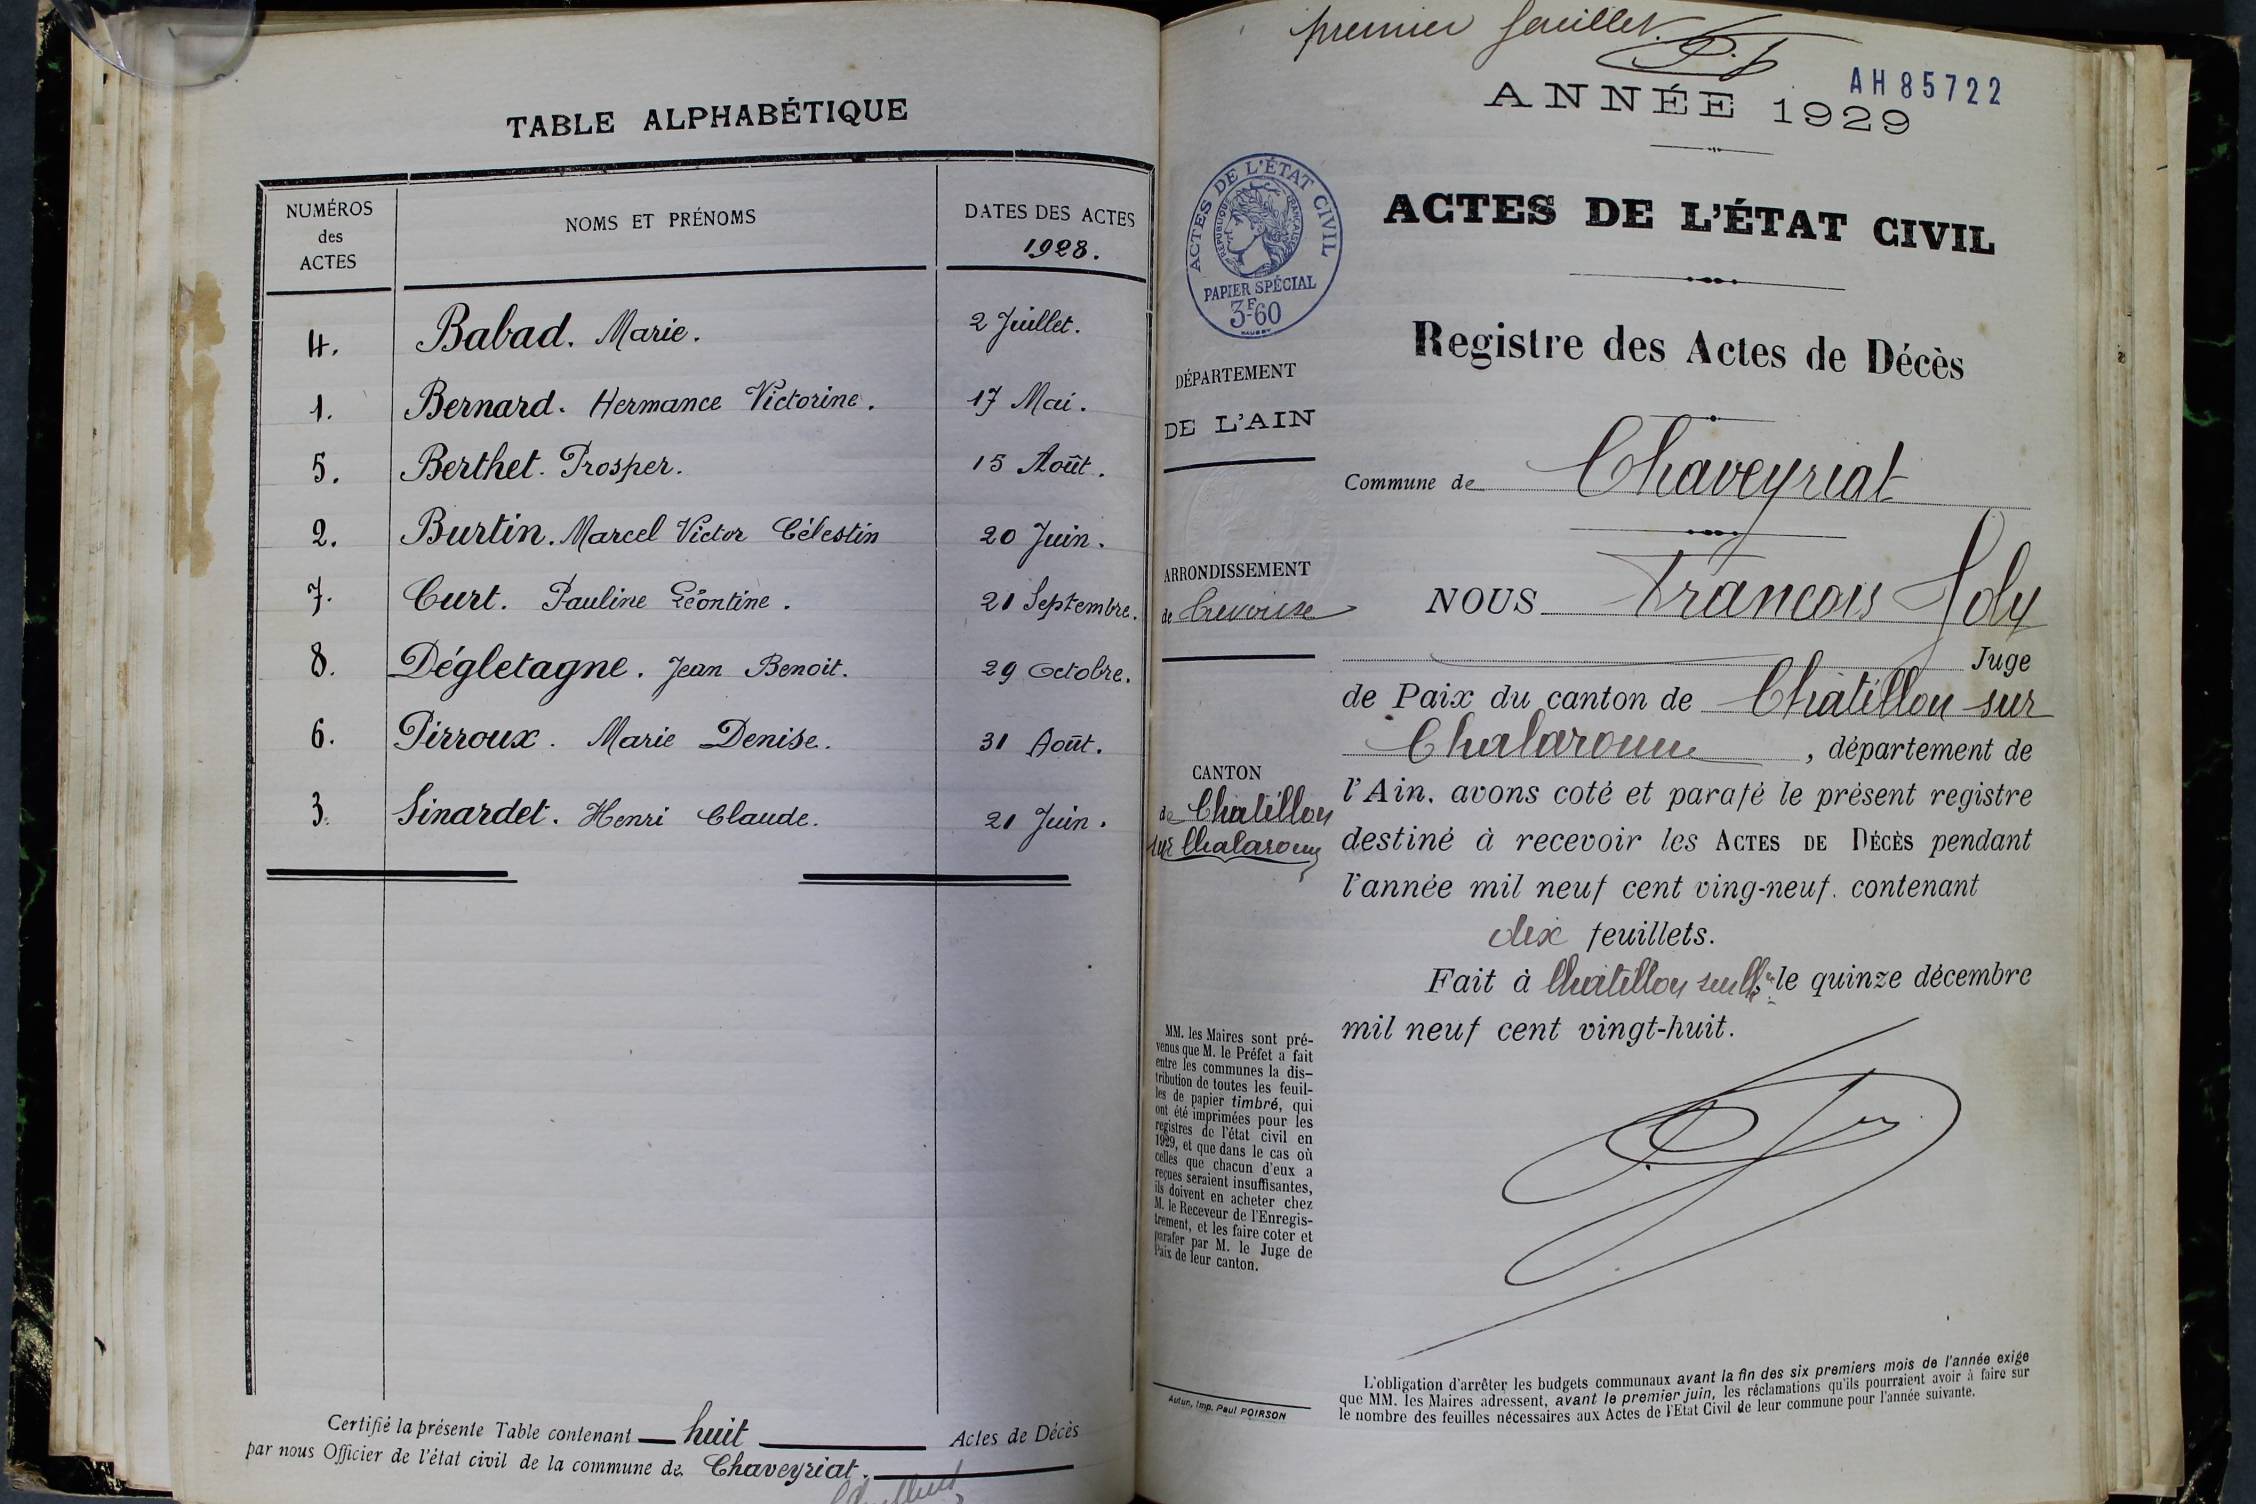 TABLE ALPHABÉTIQUE
NUMÉROS des ACTES
NOMS ET PRÉNOMS
DATES DES ACTES 1928.
4. Babad. Marie. 2 Juillet.
1. Bernard. Hermance Victorine. 17 Mai.
5. Berthet. Prosper. 15 Août.
2. Burtin. Marcel Victor Célestin 20 Juin.
7. Curt. Pauline Léontine. 21 Septembre.
8. Dégletagne. Jean Benoit. 29 Octobre.
6. Pirroux. Marie Denise. 31 Août.
3. Sinardet. Henri Claude. 21 Juin.
Certifié la présente Table contenant huit Actes de Décès
par nous Officier de l'état civil de la commune de Chaveyriat.
premier feuillet.
AH 85722
ANNÉE 1929
ACTES DE L'ÉTAT CIVIL
RÉPUBLIQUE FRANÇAISE
PAPIER SPÉCIAL
3F60
ACTES DE L'ÉTAT CIVIL
Registre des Actes de Décès
DÉPARTEMENT
DE L'AIN
Commune de Chaveyriat
ARRONDISSEMENT
de Trevoux
NOUS François Joly
Juge
de Paix du canton de Châtillon sur
Chalaronne, département de
l'Ain, avons coté et parafé le présent registre
destiné à recevoir les ACTES DE DÉCÈS pendant
l'année mil neuf cent ving-neuf. contenant
dix feuillets.
Fait à Châtillon le quinze décembre
mil neuf cent vingt-huit.
CANTON
de Chatillon
sur Chalaronne
MM. les Maires sont pré-
venus que M. le Préfet a fait
entre les communes la dis-
tribution de toutes les feuil-
les de papier timbré, qui
ont été imprimées pour les
registres de l'état civil en
1929, et que dans le cas où
celles que chacun d'eux a
reçues seraient insuffisantes,
ils doivent en acheter chez
M. le Receveur de l'Enregis-
trement, et les faire coter et
parafer par M. le Juge de
Paix de leur canton.
Autun, Imp. Paul POIRSON
L'obligation d'arrêter les budgets communaux avant la fin des six premiers mois de l'année exige
que MM. les Maires adressent, avant le premier juin, les réclamations qu'ils pourraient avoir à faire sur
le nombre des feuilles nécessaires aux Actes de l'Etat Civil de leur commune pour l'année suivante.